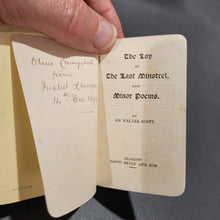 Olive Campbell
from
Mabel
14th Dec
The Lay
of
The Last Minstrel,
and
Minor Poems.
BY
SIR WALTER SCOTT.
GLASGOW:
DAVID BRYCE AND SON